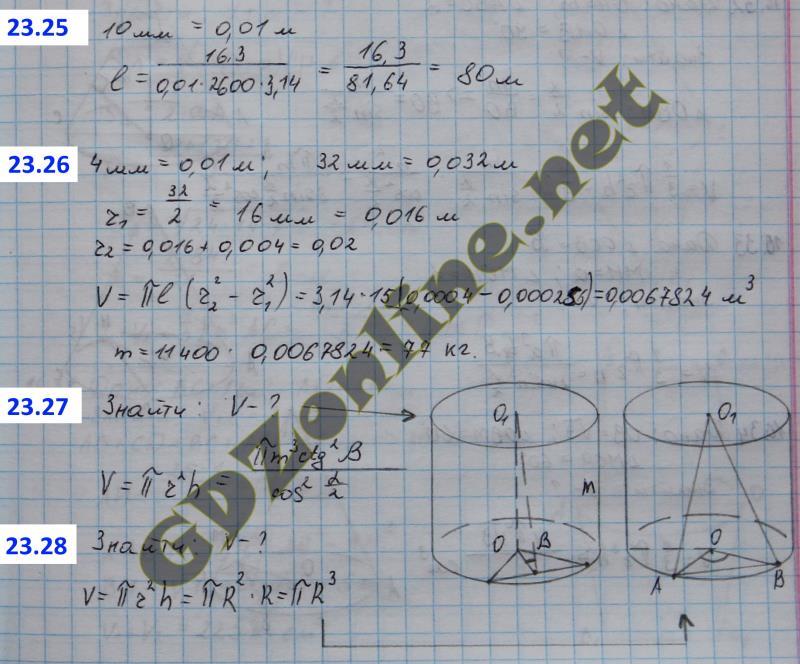 23.25
10 мм = 0,01 м
l = 16,3 / 0,01·2600·3,14 = 16,3 / 81,64 = 80 м
23.26
4 мм = 0,01 м; 32 мм = 0,032 м
r₁ = 32/2 = 16 мм = 0,016 м
r₂ = 0,016 + 0,004 = 0,02
V = πl (r₂² − r₁²) = 3,14·15(0,0004 − 0,000256) = 0,0067824 м³
m = 11400 · 0,0067824 = 77 кг.
23.27
Знайти: V − ?
V = πr²h = πm³ctg²β / cos² α/2
23.28
Знайти: V − ?
V = πr²h = πR²·R = πR³
O₁
m
O
β
O₁
O
A
B
GDZonline.net